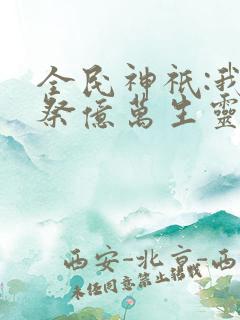 全民神祇:我
祭億萬生靈
西安-北京-西
未经同意禁止转载